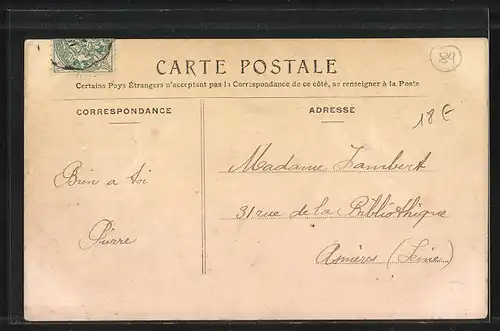 89
CARTE POSTALE
Certains Pays Étrangers n'acceptant pas la Correspondance de ce côté, se renseigner à la Poste
CORRESPONDANCE
ADRESSE
18 €
Bien a toi
Pierre
Madame Lambert
31 rue de la Bibliothique
Asnières (Seine)